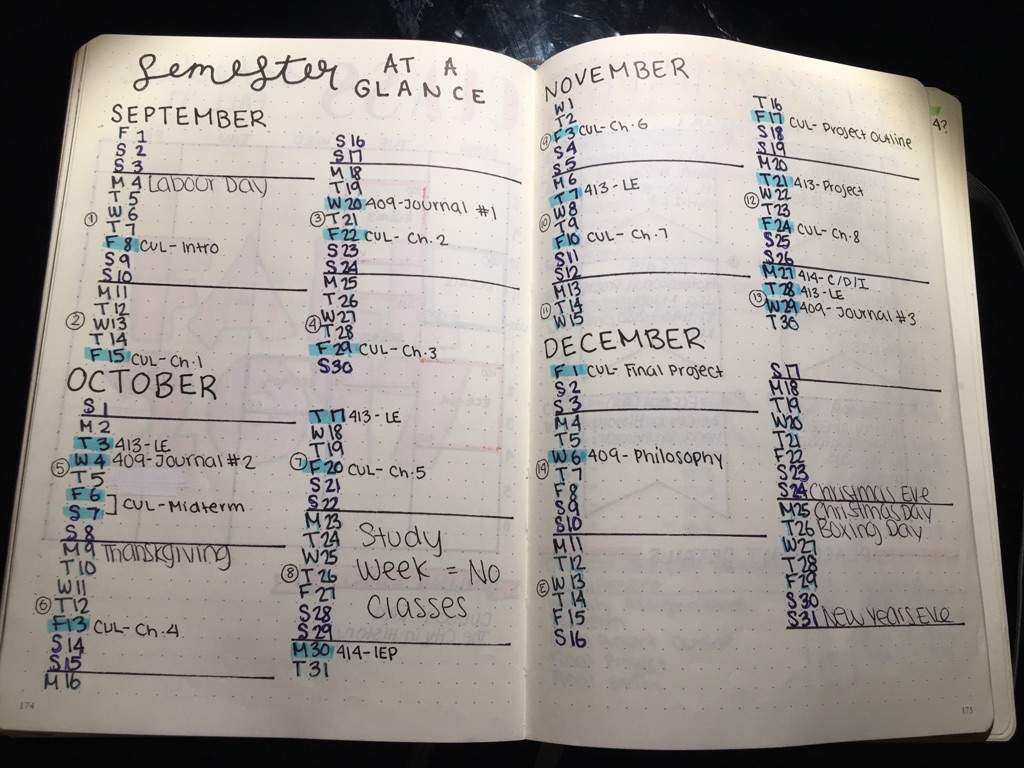 Semester AT A
GLANCE
SEPTEMBER
F 1
S 2
S 3
M 4 Labour Day
T 5
① W 6
T 7
F 8 CUL-Intro
S 9
S 10
M 11
T 12
② W 13
T 14
F 15 CUL-Ch.1
S 16
S 17
M 18
T 19
W 20 409-Journal #1
③ T 21
F 22 CUL-Ch.2
S 23
S 24
M 25
T 26
④ W 27
T 28
F 29 CUL-Ch.3
S 30
OCTOBER
S 1
M 2
T 3 413-LE
⑤ W 4 409-Journal #2
T 5
F 6
S 7 ] CUL-Midterm
S 8
M 9 Thanksgiving
T 10
W 11
⑥ T 12
F 13 CUL-Ch.4
S 14
S 15
M 16
T 17 413-LE
W 18
T 19
⑦ F 20 CUL-Ch.5
S 21
S 22
M 23
T 24 Study
W 25 week = No
⑧ T 26
F 27 Classes
S 28
S 29
M 30 414-IEP
T 31
NOVEMBER
W 1
T 2
⑨ F 3 CUL-Ch.6
S 4
S 5
M 6
T 7 413-LE
W 8
⑩ T 9
F 10 CUL-Ch.7
S 11
S 12
M 13
⑪ T 14
W 15
T 16
F 17 CUL-Project Outline
S 18
S 19
M 20
T 21 413-Project
⑫ W 22
T 23
F 24 CUL-Ch.8
S 25
S 26
M 27 414-C/D/I
⑬ T 28 413-LE
W 29 409-Journal #3
T 30
DECEMBER
F 1 CUL-Final Project
S 2
S 3
M 4
T 5
⑭ W 6 409-Philosophy
T 7
F 8
S 9
S 10
M 11
T 12
W 13
T 14
F 15
S 16
S 17
M 18
T 19
W 20
T 21
F 22
S 23
S 24 Christmas Eve
M 25 Christmas Day
T 26 Boxing Day
W 27
T 28
F 29
S 30
S 31 New Years Eve
174
175
4?